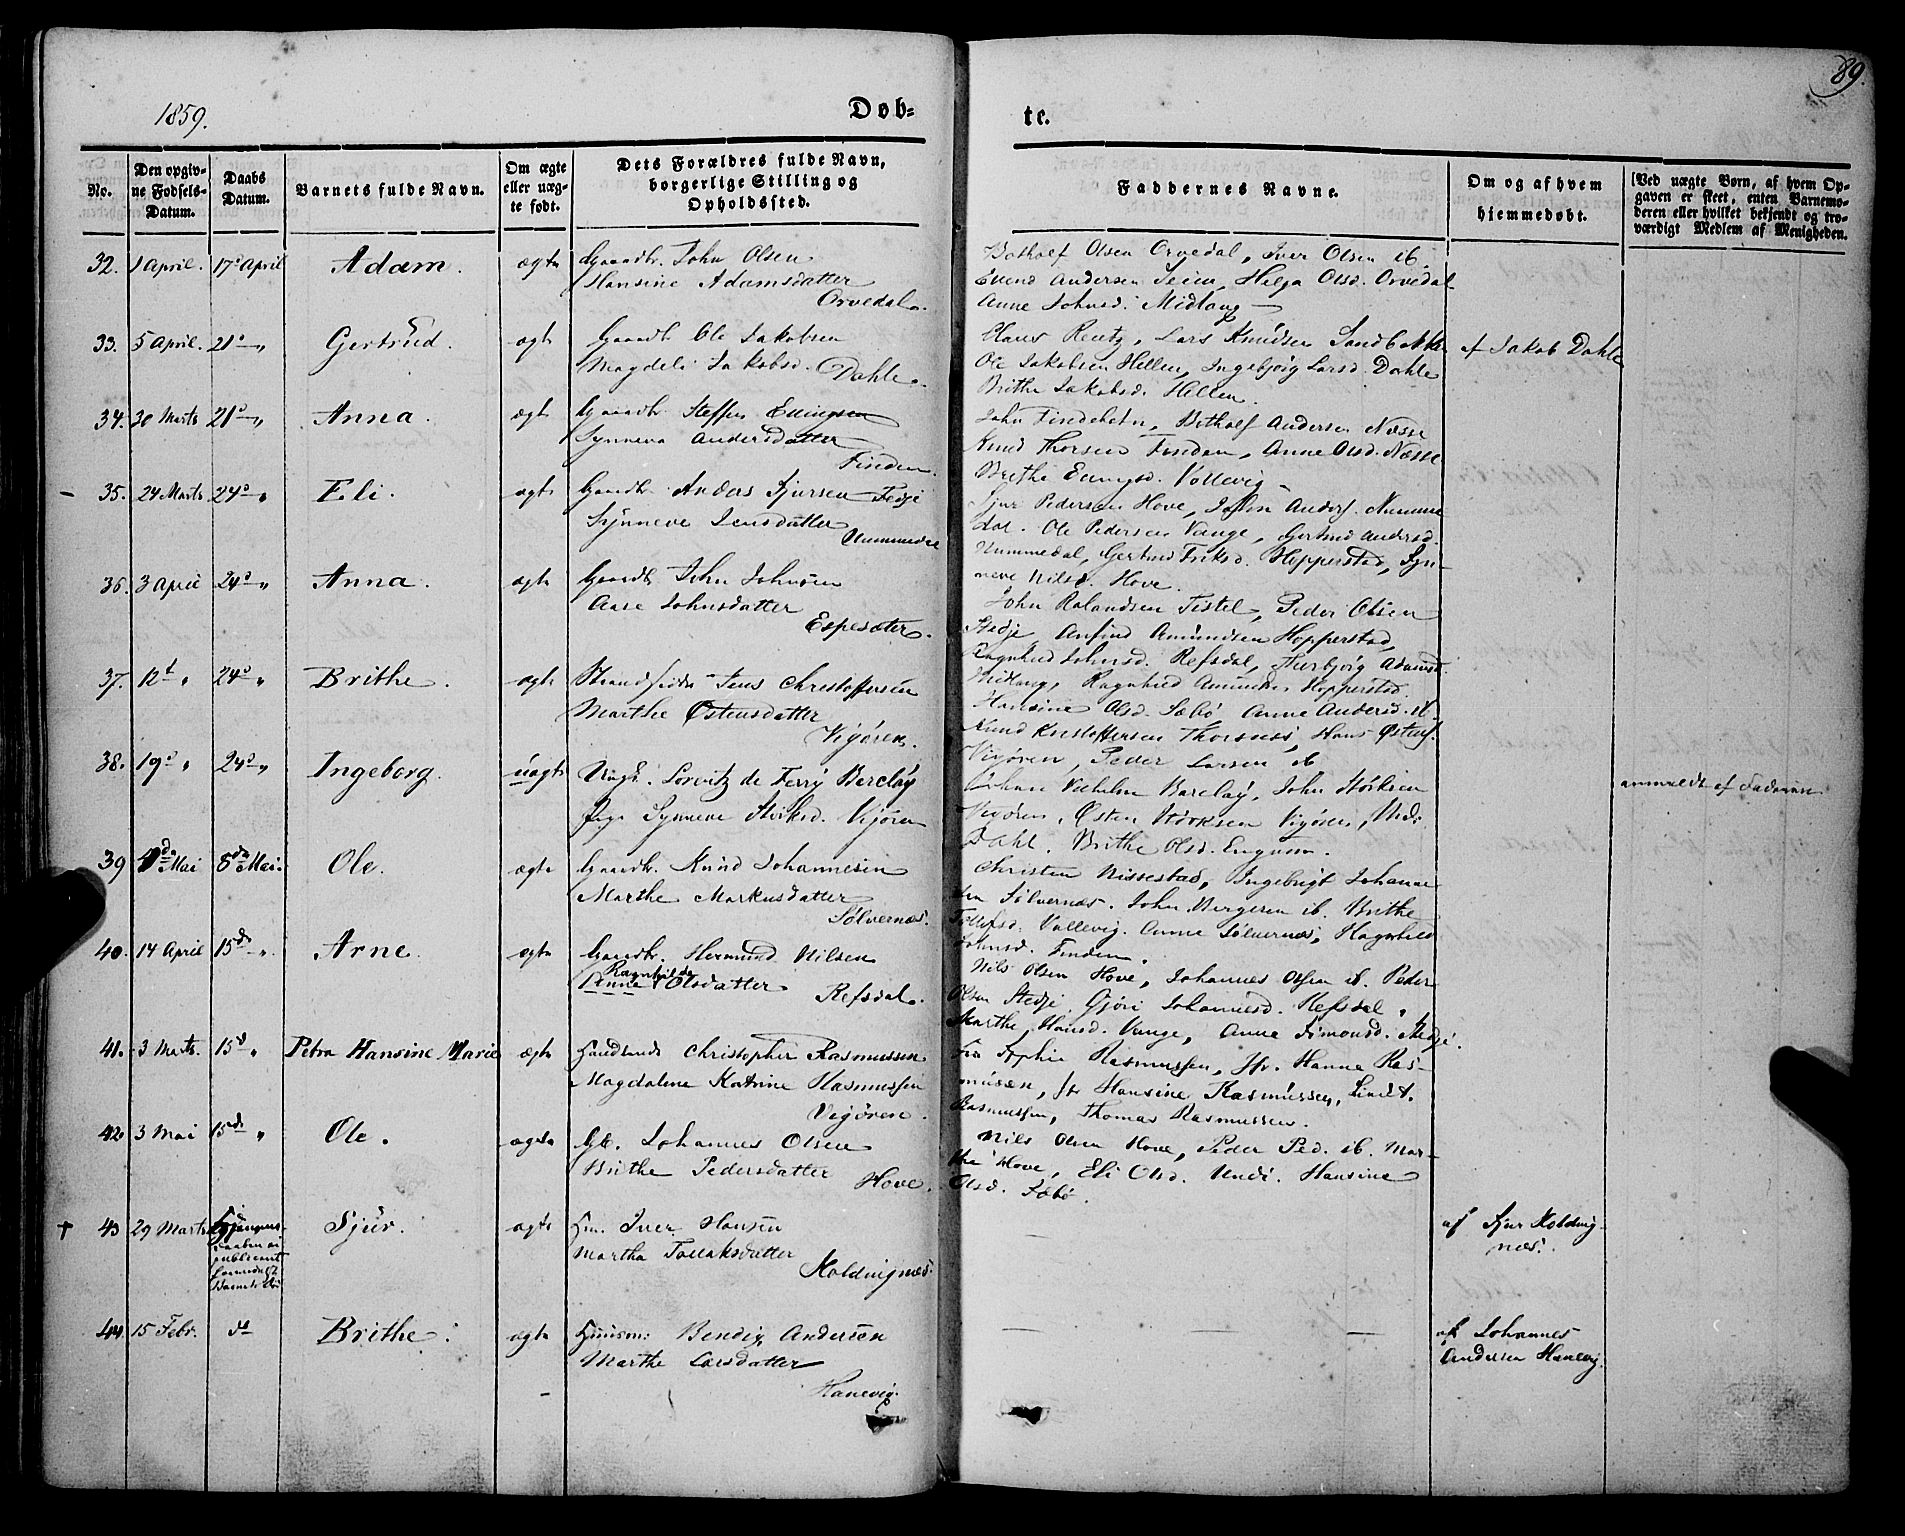 1859.
Døb=
te.
89.
No.
Den opgiv-
ne Fødsels-
Datum.
Daabs
Datum.
Barnets fulde Navn.
Om ægte
eller uæg-
te født.
Dets Forældres fulde Navn,
borgerlige Stilling og
Opholdssted.
Faddernes Navne.
Om og af hvem
hjemmedøbt.
[Ved uægte Børn, af hvem Op-
gaven er skeet, enten Barnemo-
deren eller hvilket bekjendt og tro-
værdigt Medlem af Menigheden.
32. 1 April. 17de April Adam. ægte Gaardbr. John Olsen
Hansine Adamsdatter
Orvedal.
Olsen Orvedal, Iver Olsen ib
Endre Andersen Seim, Helga Olsd. Orvedal
Anne Johnsd. Midlang
33. 5 April. 21de " Gertrud. ægte Gaardb Ole Jakobsen
Magdeli Jakobsd. Dahle.
Claus Rentz, Lars Knudsen
Ole Jakobsen Hellen, Ingebjørg Larsd. Dahle
Brithe Jakobsd. Hellen.
af Jakob Dahle
34. 30 Marts 21de " Anna. ægte Gaardbr. Steffen
Synneva Andersdatter
Finden.
John Andersen Næsse
Knud Thorsen Finden, Anne Olsd. Næsse
Brithe Vollevig
35. 24 Marts 24de " Eli. ægte Gaardbr. Anders Sjursen
Synneve Jensdatter
Nummedal
Sjur Pedersen Hove, John Anders. Numme
dal. Ole Pedersen Vange, Gertrud Andersd.
Nummedal, Gertrud Eriksd. Hopperstad, Syn-
neve Nilsd. Hove.
36. 3 April 24de " Anna. ægte Gaardb. John Johnsen
Aase Johnsdatter
Espesæter.
John Rolandsen Tistel, Peder Olsen
Stedje, Anfind Amundsen Hopperstad,
Ragnhild Johnsd. Refsdal, Adamsd.
Midlang, Ragnhild Hopperstad.
37. 12te " 24de " Brithe. ægte Strandsidder Jens Christoffersen
Marthe Østensdatter
Vigøren.
Hansine Olsd. Sæbø, Anne Andersd. ib.
Knud Kristoffersen Thorsnæs, Hans Østens.
Vigøren, Peder Larsen ib
38. 19de " 24de " Ingeborg. uægte Ungk. Lorentz de Ferry Barclay
Pige Synneve Størksd. Vigøren
Johan Vilhelm Barclay, John Størksen
Vigøren, Østen Størksen Vigøren,
Dahl. Brithe Olsd. Engum.
anmeldt af Faderen
39 Mai 8de Mai. Ole. ægte Gaardbr. Knud Johannesen
Marthe Markusdatter
Sølvernæs.
Christen Nissestad, Ingebrigt Johanne
sen Sølvernæs. John Bergeren ib. Brithe
Tollefsd. Vallevig. Anne Sølvernæs, Ragnhild
Johnsd. Finden.
40. 14 April 15de " Arne. ægte Gaardbr. Hermund Nilsen
Ragnhilde
Anne Olsdatter Refsdal.
Nils Olsen Hove, Johannes Olsen ib. Peder
Olsen Stedje Gjøri Johannesd. Refsdal,
Marthe Hansd. Vange, Anne Simonsd. Stedje.
41. 3 Marts. 15de " Petra Hansine Marie ægte Handlende Christopher Rasmussen
Magdalene Katrine Rasmussen
Vigøren.
Fru Sophie Rasmussen, Jfr. Hanne Ras-
mussen, Jfr Hansine Rasmussen,
Rasmussen, Thomas Rasmussen.
42. 3 Mai 15de " Ole. ægte Gb. Johannes Olsen
Brithe Pedersdatter
Hove.
Nils Olsen Hove, Peder Ped. ib. Mar-
the Hove, Eli Olsd. Undi. Hansine
Olsd. Sæbø.
† 43 29 Marts
Sjur. ægte Hm. Iver Hansen
Martha Tollaksdatter
Holdingnæs.
af Sjur Holding-
næs.
44. 15 Febr. do Brithe. ægte Huusm: Bendix Andersen
Marthe Larsdatter
Hanevig.
af Johannes
Andersen Hanevig.